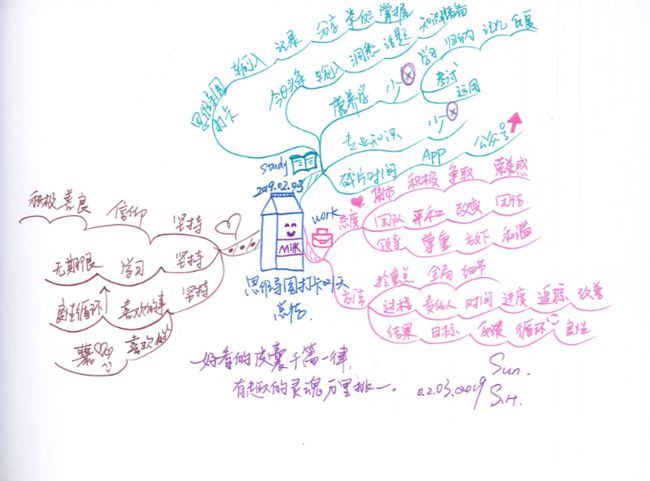 思维导图打卡 输入 记录 分享 掌握
今日头条 输入 洞悉 话题 知识储备
营养学 少 学习 归纳 记忆 反复
考试 运用
专业知识 少
碎片时间 App 公众号
study
2019.02.03
MilK
思维导图打卡21天
总结
work
态度
集体 积极 争取 荣誉感
团队 平和 真诚 团结
领导 尊重 放下 和谐
方法
抢重点 全局 细节
过程 责任人 时间 进度 追踪 改善
结果 目标 反馈 循环 良性
积极善良 信仰 坚持
无期限 学习 坚持
良性循环 喜欢的事 坚持
喜欢的
好看的皮囊千篇一律,
有趣的灵魂万里挑一。
02.03.2019
Sun.
S.H.